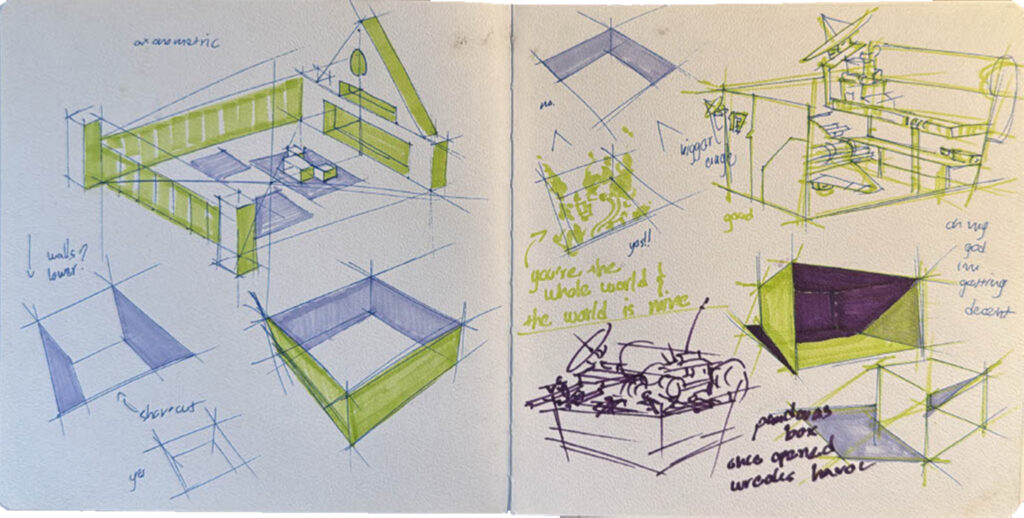 axonometric
walls?
lower.
shortcut
yes
no.
bigger
angle
good
yes!!
you're the
whole world &
the world is mine
oh my
god
im
getting
decent
pandoras
box
she opened
wreaks havoc